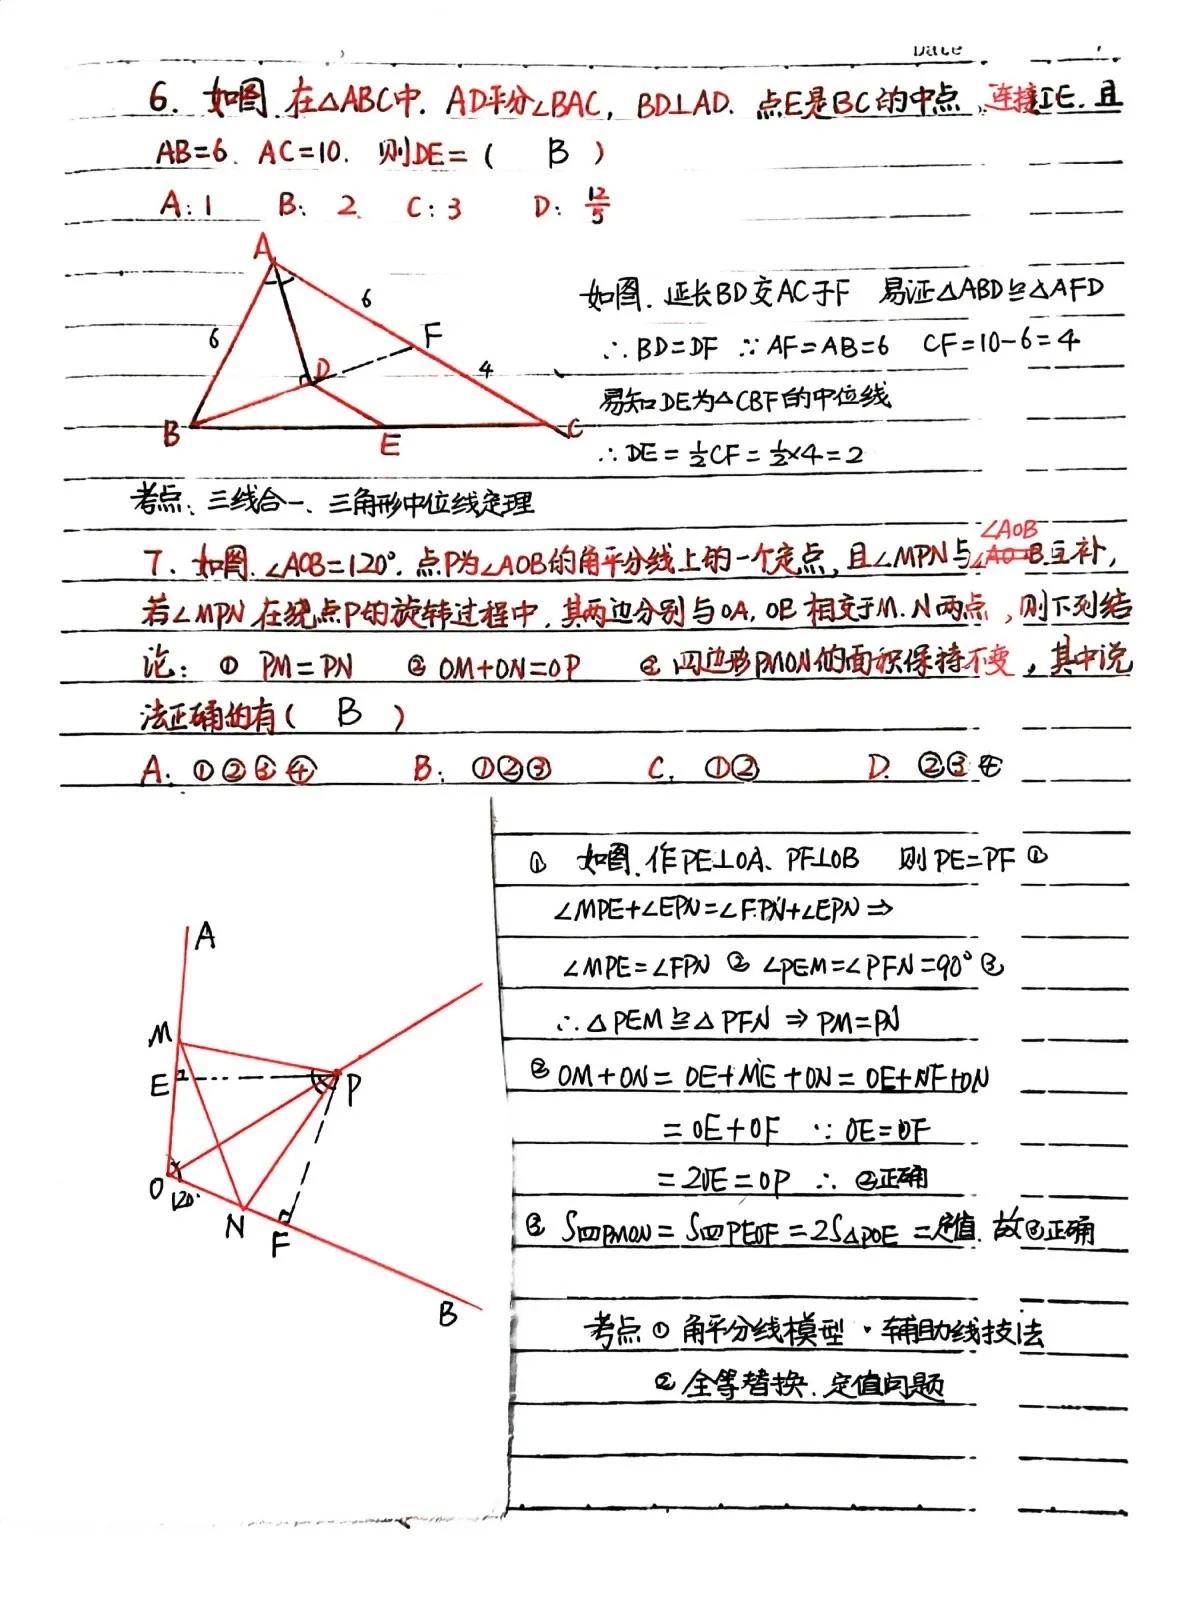 Date
6. 如图.在△ABC中.AD平分∠BAC, BD⊥AD.点E是BC的中点,连接DE.且
AB=6. AC=10. 则DE=( B )
A:1 B: 2 C:3 D: 12/5
A
6
6
F
D
4
B
E
C
如图.延长BD交AC于F 易证△ABD≌△AFD
∴BD=DF ∵AF=AB=6 CF=10-6=4
易知DE为△CBF的中位线
∴DE=½CF=½×4=2
考点:三线合一、三角形中位线定理
∠AOB
7.如图.∠AOB=120°.点P为∠AOB的角平分线上的一个定点,且∠MPN与∠AOB互补,
若∠MPN在绕点P的旋转过程中,其两边分别与OA,OB相交于M.N两点,则下列结
论: ① PM=PN ② OM+ON=OP ③ 四边形PMON的面积保持不变,其中说
法正确的有( B )
A: ①②③④ B: ①②③ C. ①② D. ②③④
A
M
E
P
O
120°
N
F
B
① 如图.作PE⊥OA、PF⊥OB 则PE=PF ①
∠MPE+∠EPN=∠FPN+∠EPN⇒
∠MPE=∠FPN ② ∠PEM=∠PFN=90° ③
∴△PEM≌△PFN ⇒PM=PN
② OM+ON=OE+ME+ON=OE+NF+ON
=OE+OF ∵OE=OF
=2OE=OP ∴ ②正确
③ S四PMON=S四PEOF=2S△POE=定值.故③正确
考点① 角平分线模型·辅助线技法
② 全等替换.定值问题